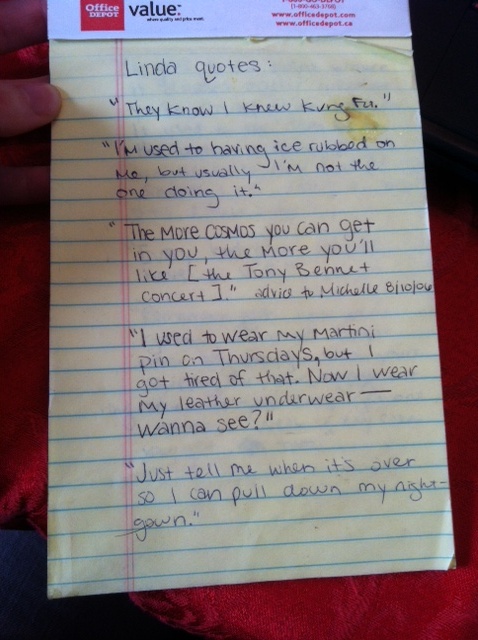 Office DEPOT
value:
where quality and price meet.
(1-800-463-3768)
www.officedepot.com
www.officedepot.ca
Linda quotes:
"They know I know Kung Fu."
"I'm used to having ice rubbed on
me, but usually I'm not the
one doing it."
"The more cosmos you can get
in you, the more you'll
like [the Tony Bennet
concert]." advice to Michelle 8/10/06
"I used to wear my martini
pin on Thursdays, but I
got tired of that. Now I wear
my leather underwear —
wanna see?"
"Just tell me when it's over
so I can pull down my night-
gown."